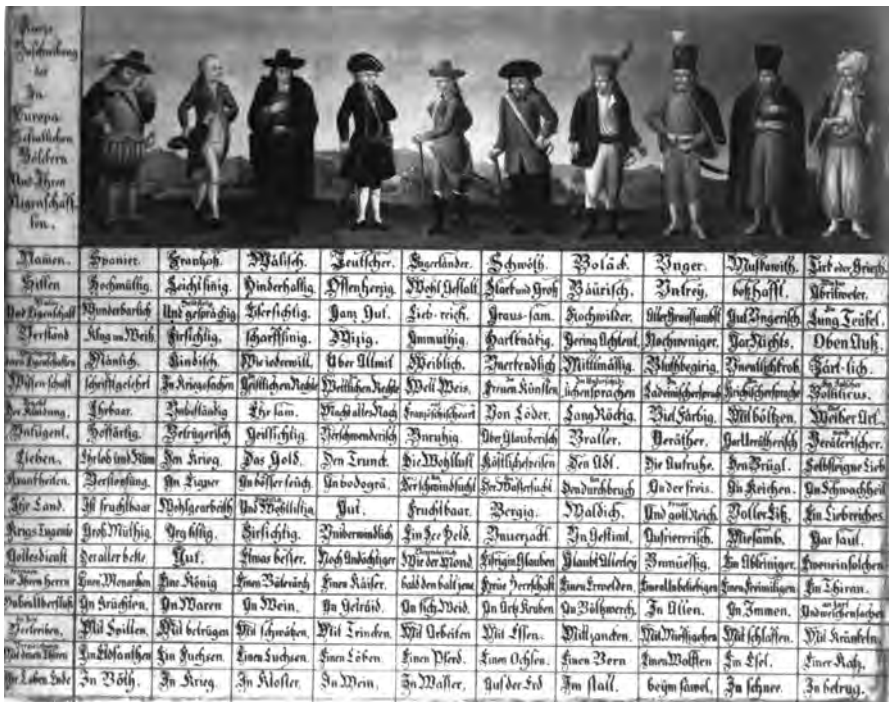 Kurze
Beschreibung
der
In
Europa
Befintlichen
Völckern
Und Ihren
Aigenschaff
ten.
Namen. Spanier. Frantzoß. Wälisch. Teutscher. Engerländer. Schwöth. Boläck. Unger. Muskawith. Tirk oder Griech
Sitten Hochmüttig. Leichtsinig. Hinderhaltig. Offenherzig Wohl Gestalt Starck und Groß Bäurisch. Untrey. boßhafft. Abrilweter.
Und Eigenschaft Wunderbarlich Und gesprächig Eifersichtig. Ganz Gut. Lieb-reich. Graus-sam. Nochwilder. Aller Grausambst Gut Ungerisch Lung Teüfel.
Verstand Klug un Weiß Firsichtig. scharffsinig. Wizig. Anmuthig. Hartknäkig Gering Achtent. Nochweniger. Gar Nichts. Oben Auß.
Eigenschaften Mänlich. Kindisch. Wie iederwill. Über Allmit Weiblich. Unerkendlich Mittlmässig. Bluthbegirig. Unentlich krob. Zärt-lich.
Wissenschaft schrifftgelehrt In Kriegssachen Geistlichen Rechte Weltlichen Rechte Welt Weis. Freuen Künsten Ladeinischersprach Krichischersprache Bolliticus.
Der Kleidung. Ehrbaar. Unbeständig Ehrsam. Macht alles Nach Französischeart Von Löder. Lang Röckig. Viel Färbig. Mit böltzen. Weiber Art.
Untugent. Hoffärtig. Betrügerisch Geillsichtig. Verschwenderisch Unruhig. Aber Glauberisch Braller. Veräther. Gar Verätherisch Verätérischer.
Lieben. Ehrlob und Rüm Den Krieg. Das Gold. Den Trunck. Die Wohllust Köstliche speisen Den Adl. Die Aufruhe. Den Brügl. Selbsteigne Lieb
Kranckheiten. Verstopfung. An Eigner An böser seüch. An bodogrä. Der schwindsucht Der Wassersucht Den durchbruch An der freis. An Keichen. An Schwachheit
Ihr Land. Ist fruchtbaar Wohlgearbeith Und Wohllistig Gut. Fruchtbaar. Bergig. Waldich. Und gott Reich Voller Eiß. Ein Liebreiches
Krigs Tugente Groß Müthig. Arg listig. Firsichtig. Uniberwindlich Ein See Held. Unverzacht. Un Gestimt. Aufrierrisch. Miesamb. Gar faul.
Gottesdienst Der aller beste Gut. Etwas besser. Noch Andächtiger Wie der Mond. Eifrig in Glauben Glaubt Allerley Unmüessig. Ein Abtriniger. Eweneinsolchen
Ihrem herrn Einen Monarchen Eine König Einen Baterärch Einen Kaiser. bald den balt jene Freüe Herrschaft Einen Erwelden. Einen Unbeliebigen Einen Freimiligen Ein Thiran.
Haben Überfluß An Früchten. An Waren An Wein. An Getraid. An fich Weid. An Artz Kruben An Böltzwerch. In Allen. In Immen. Und weichen sachen
Zeit Vertreiben. Mit Spillen. Mit betrügen Mit schwätzen. Mit Trincken. Mit Arbeiten Mit Essen. Mitt zancken. Mit Miessigehen Mit schlaffen. Mit Kränkeln
Mit denen Thiren Ein Elofanthen Ein Fuchsen. Einen Luchsen. Einen Löben. Einen Pferd. Einen Ochsen. Einen Bern Einen Wolffen Ein Esel. Einer Katz.
Ihr Leben Ende In Böth. In Krieg. In Kloster. In Wein. In Wasser. Auf der Erd Im stall. beÿm säwel. In schnee. In betrug.